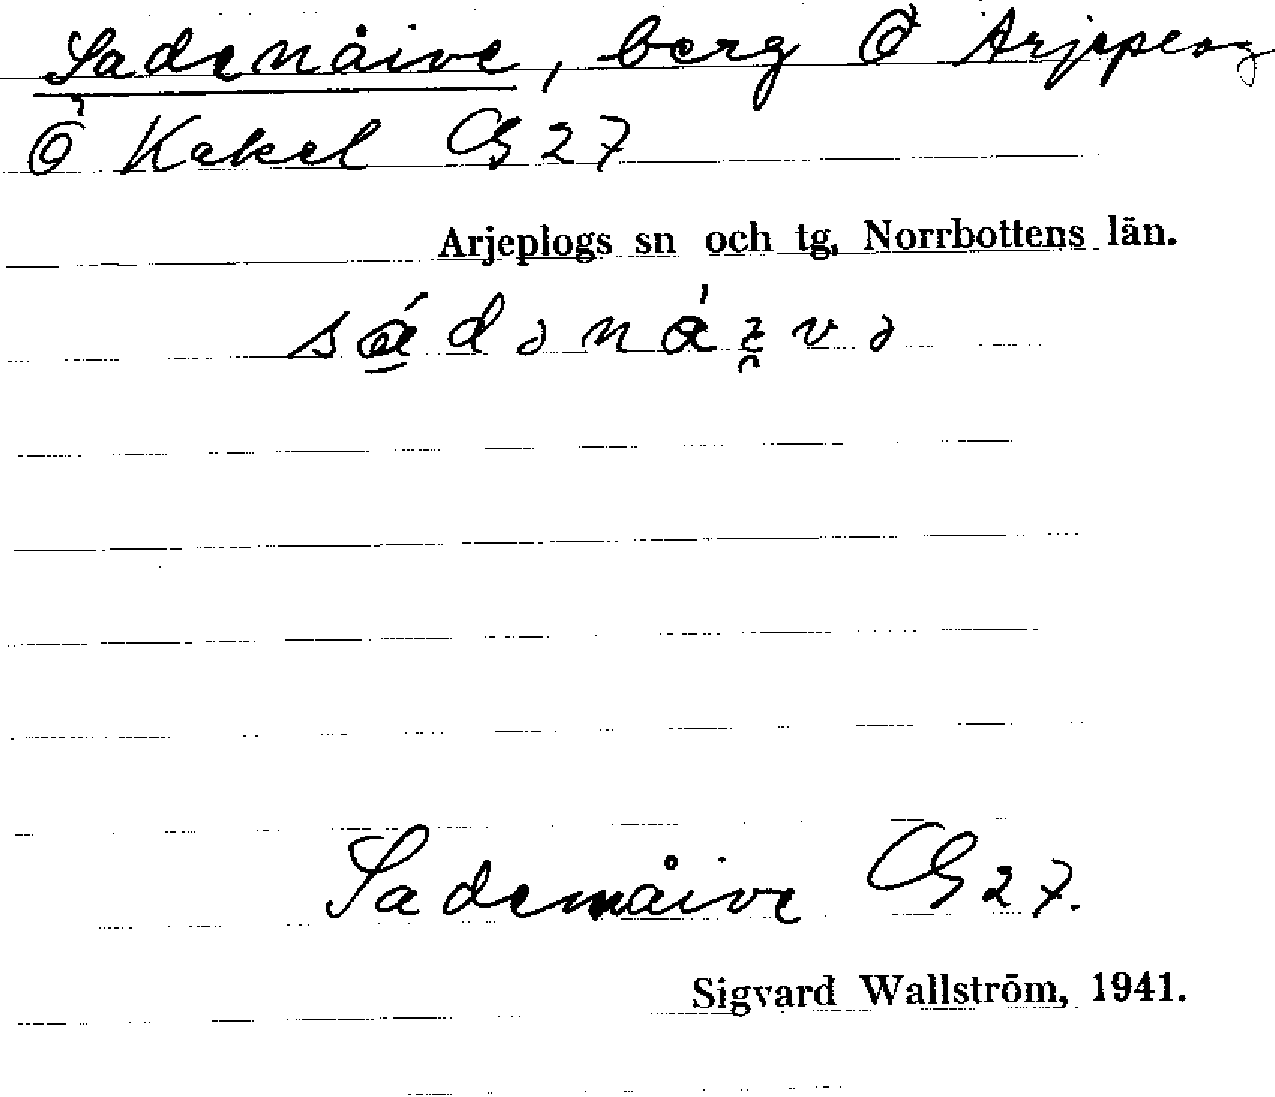 Sadenåive, berg Ö Arjeplog
Ö Kakel GS 27
Arjeplogs sn och tg, Norrbottens län.
Sadenåive GS 27.
Sigvard Wallström, 1941.